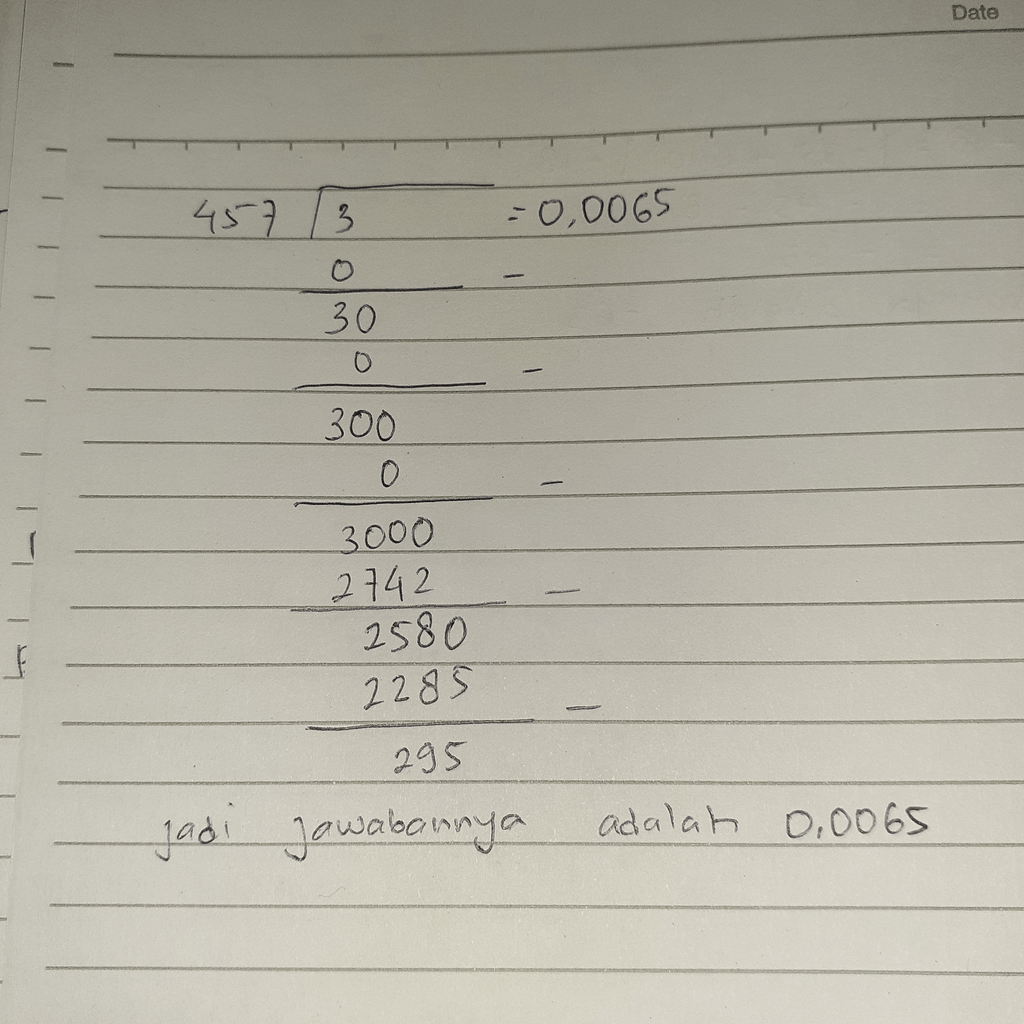 Date
457 3 = 0,0065
0 -
30
0 -
300
0 -
3000
2742 -
2580
2285 -
295
jadi jawabannya adalah 0,0065